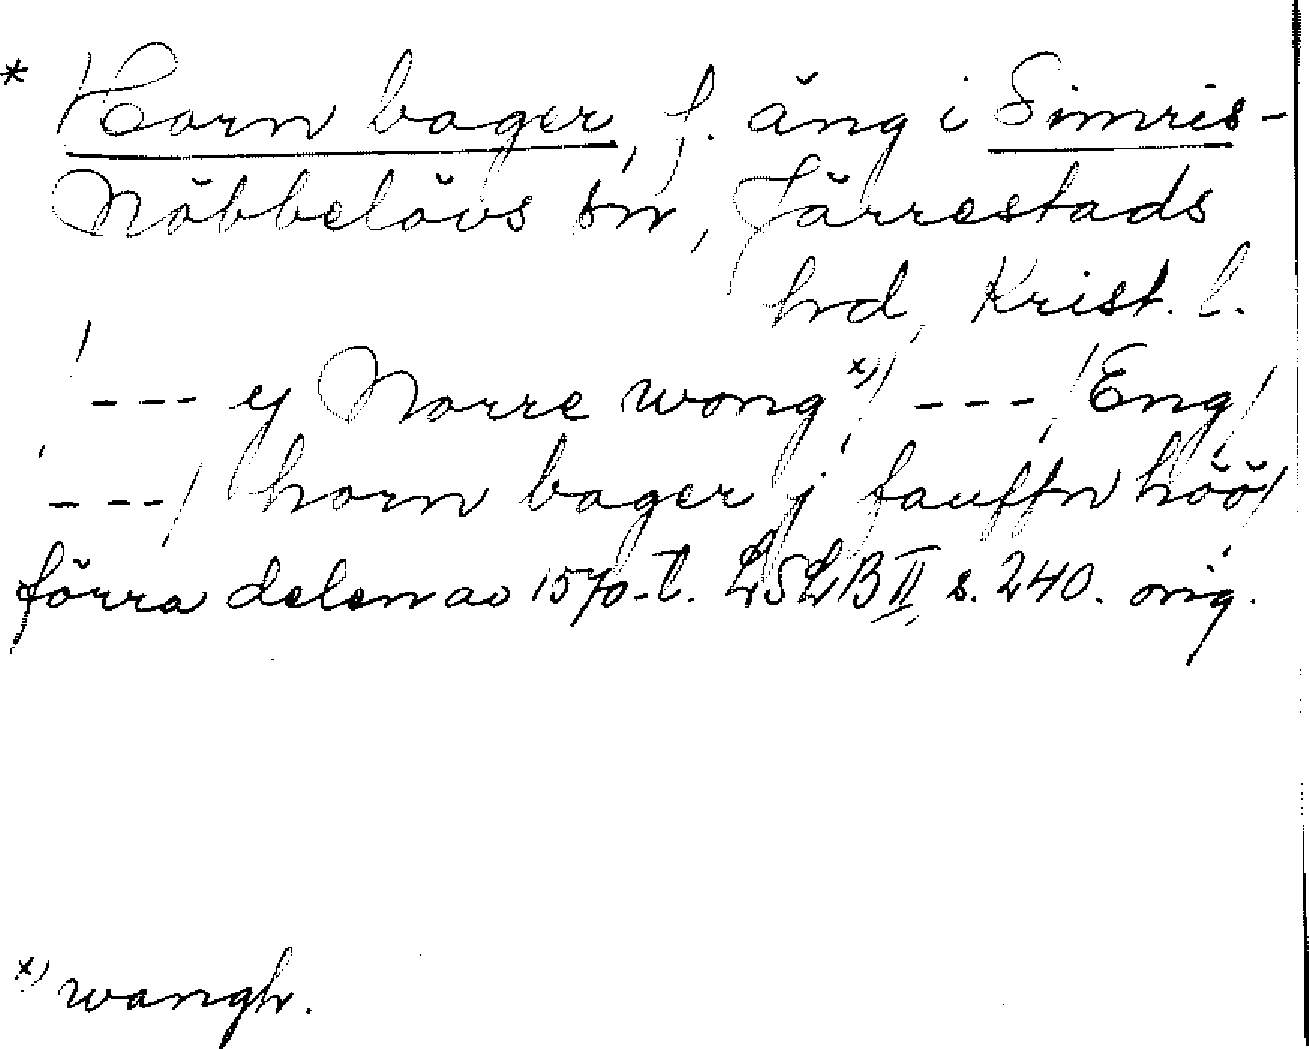 * Horn bager, f. äng i Simris-
Nöbbelövs sn, Järrestads
hrd, Krist. l.
/--- ej Norre wong x)/ ---/ Eng/
---/ horn bager j fauffn höö/
förra delen av 1570-t. LSLB II, s. 240. orig.
x) wangh.